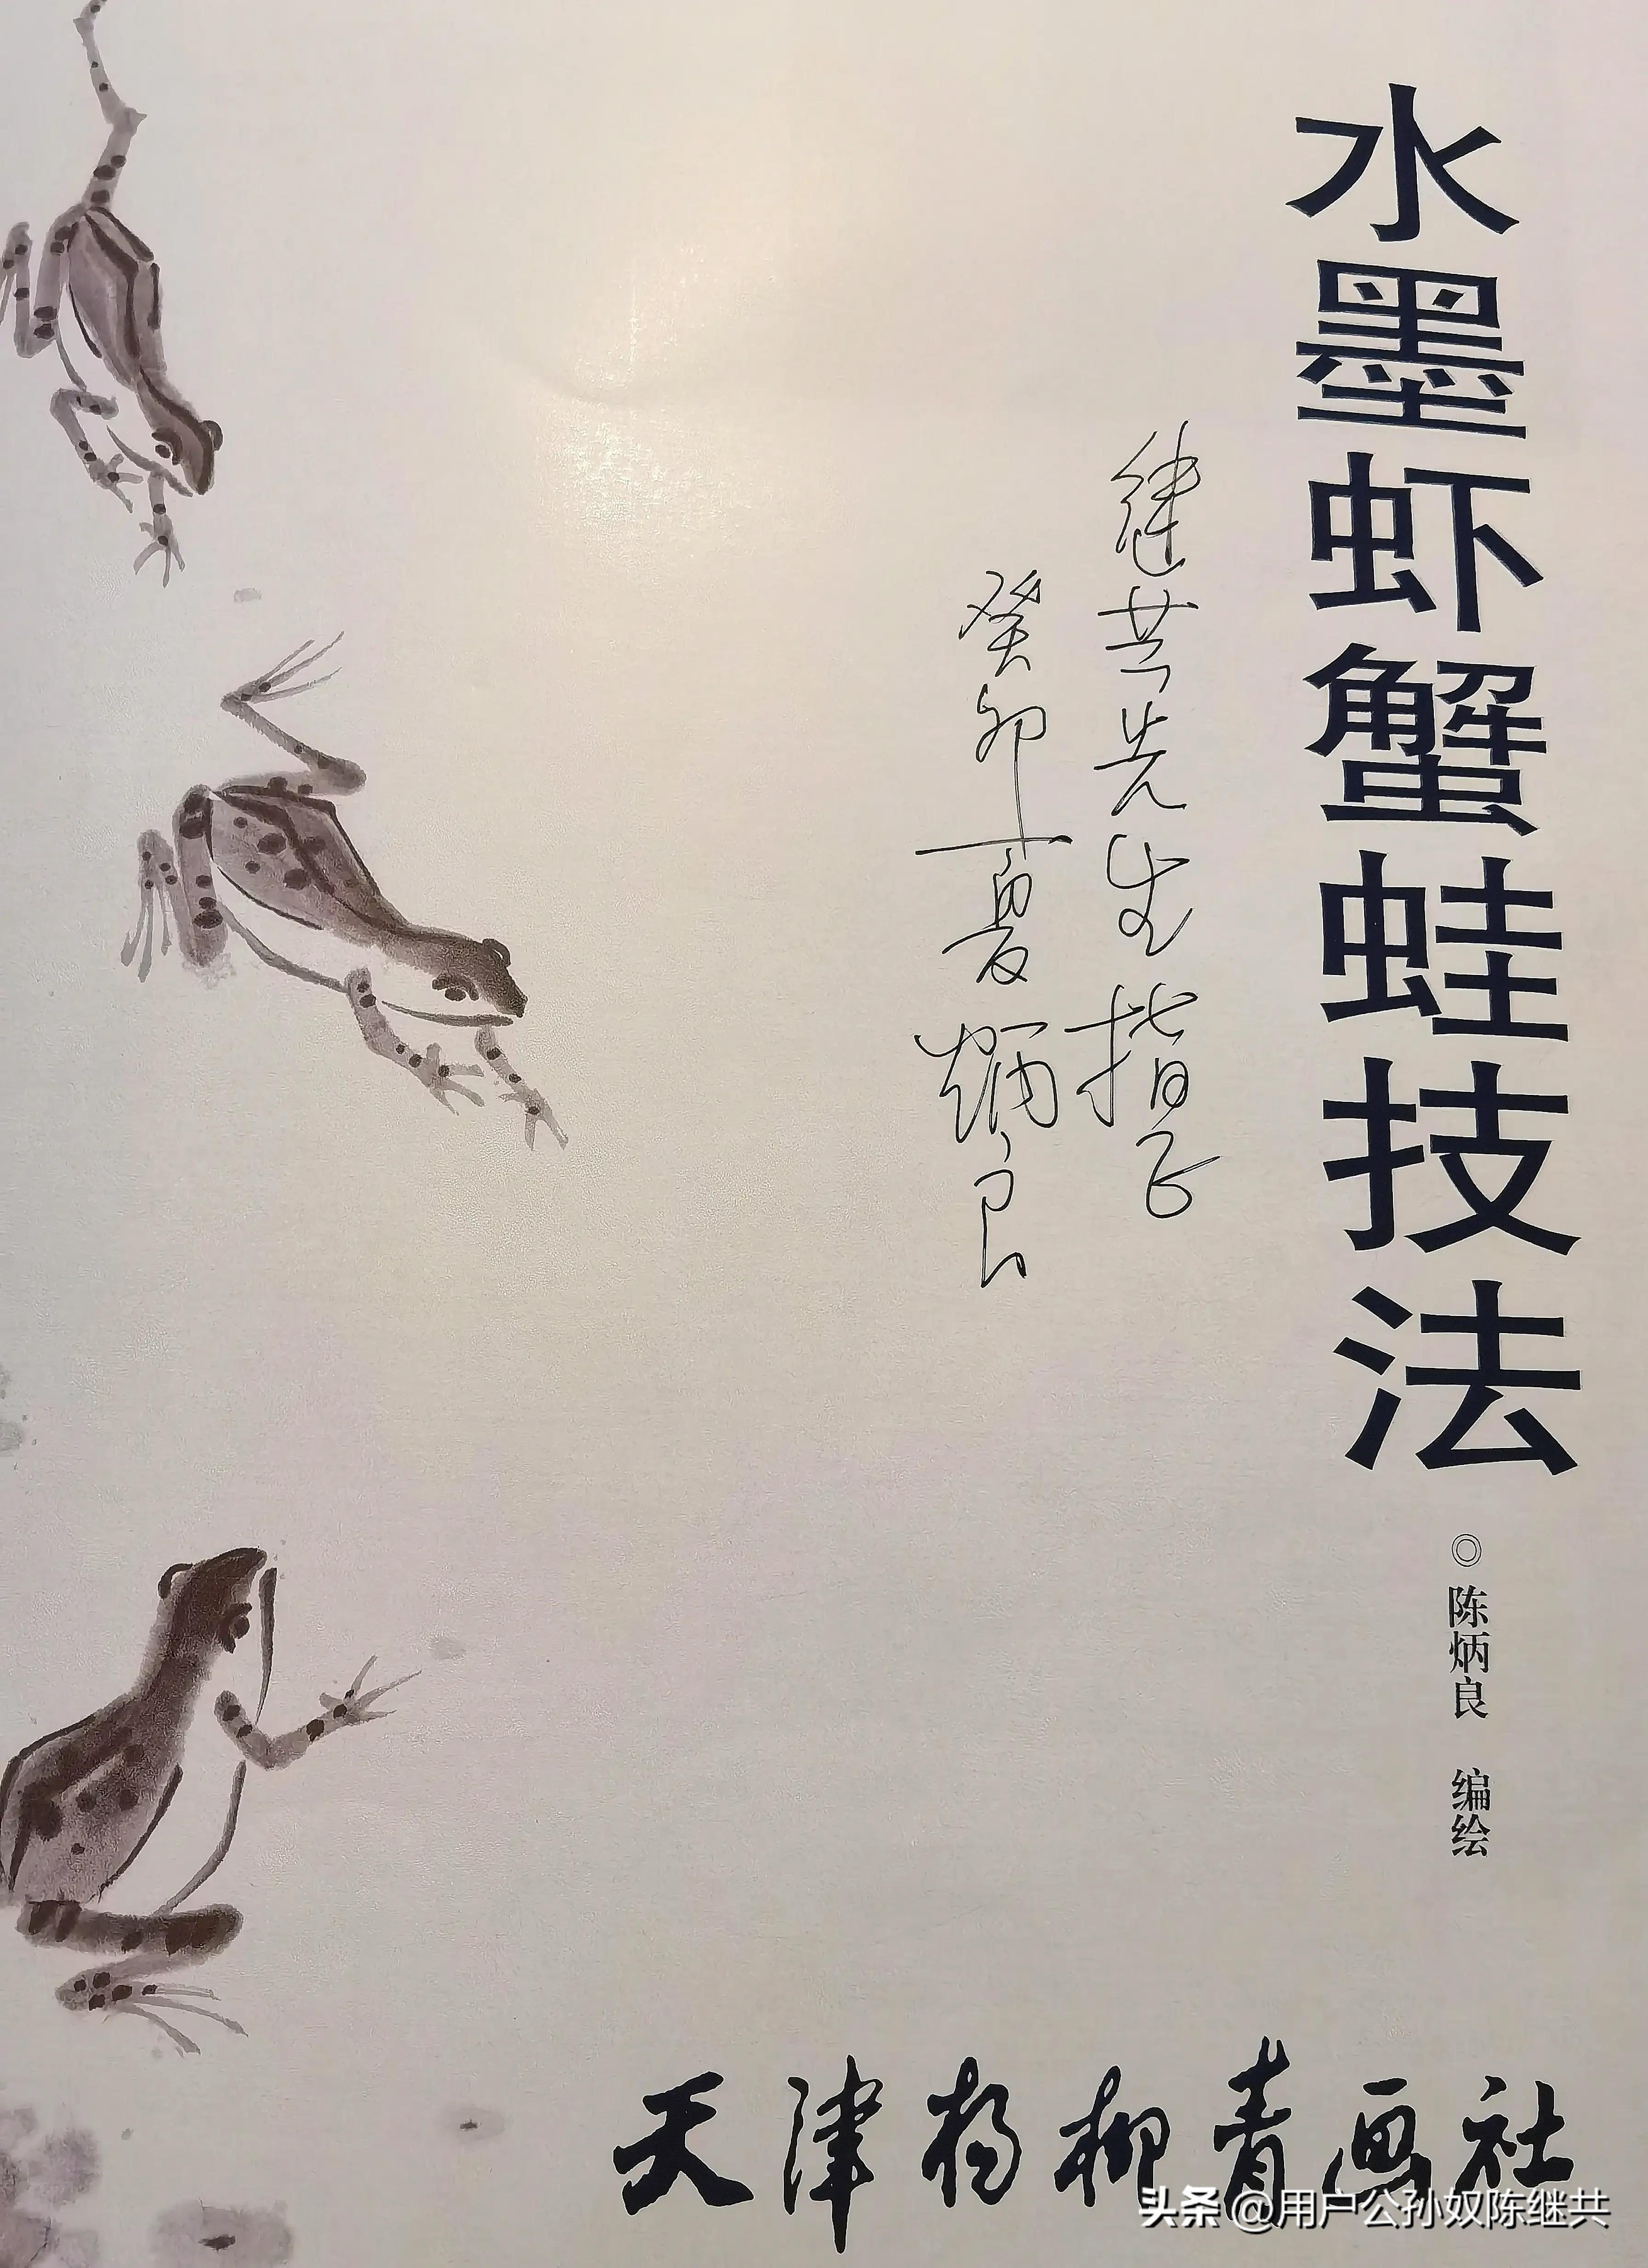 水墨虾蟹蛙技法
◎陈炳良 编绘
继共先生指正
癸卯夏炳良
天津杨柳青画社
头条 @用户公孙奴陈继共